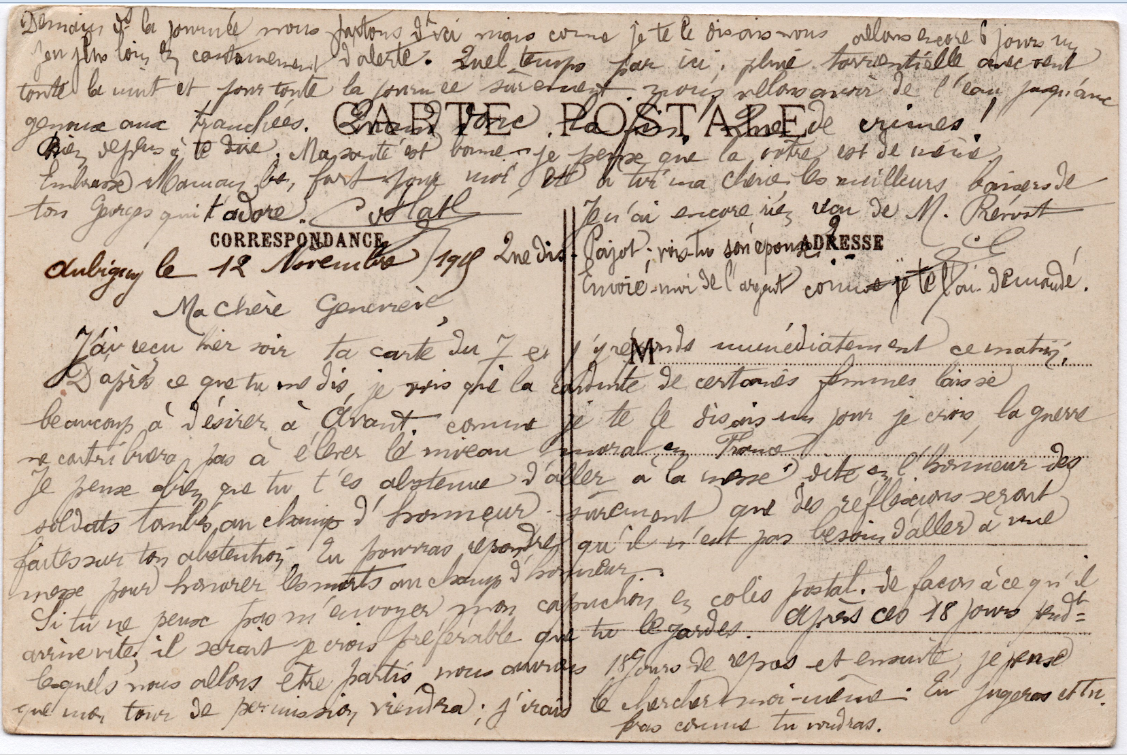 Demain ds la journée nous partons d'ici mais comme je te le disais nous allons encore 6 jours
en cantonnement d'alerte. Quel temps par ici; pluie torrentielle avec vent
toute la nuit et pour toute la journée sûrement nous allons avoir de l'eau jusqu'aux
genoux aux tranchées. de crimes!
CARTE POSTALE
Rien de plus à te dire. Ma santé est bonne je pense que la votre est de même.
Embrasse Maman fort pour moi et à toi ma chère les meilleurs baisers de
ton Georges qui t'adore.
CORRESPONDANCE
Aubigny le 12 Novembre 1915
Ma chère Geneviève
J'ai reçu hier soir ta carte du 7 et j'y réponds immédiatement ce matin.
D'après ce que tu me dis, je vois que la conduite de certaines femmes laisse
beaucoup à désirer à Avant. comme je te le disais un jour je crois, la guerre
ne contribuera pas à élever le niveau moral en France
Je pense bien que tu t'es abstenue d'aller à la messe dite en l'honneur des
soldats tombés au champ d'honneur. sûrement que des réflexions seront
faites sur ton abstention. Tu pourras répondre qu'il n'est pas besoin d'aller à une
messe pour honorer les morts au champ d'honneur
Si tu ne peux pas m'envoyer mon capuchon en colis postal. de façon à ce qu'il
arrive vite, il serait je crois préférable que tu le gardes. Après ces 18 jours pendt
lesquels nous allons être partis nous aurons 18 jours de repos et ensuite, je pense
que mon tour de permission viendra; j'irais le chercher moi-même. Tu jugeras et tu
feras comme tu voudras.
ADRESSE
Je n'ai encore rien reçu de M. Prévost
Pajot; vois-tu son épouse?
Envoie-moi de l'argent comme je te l'ai demandé.
M